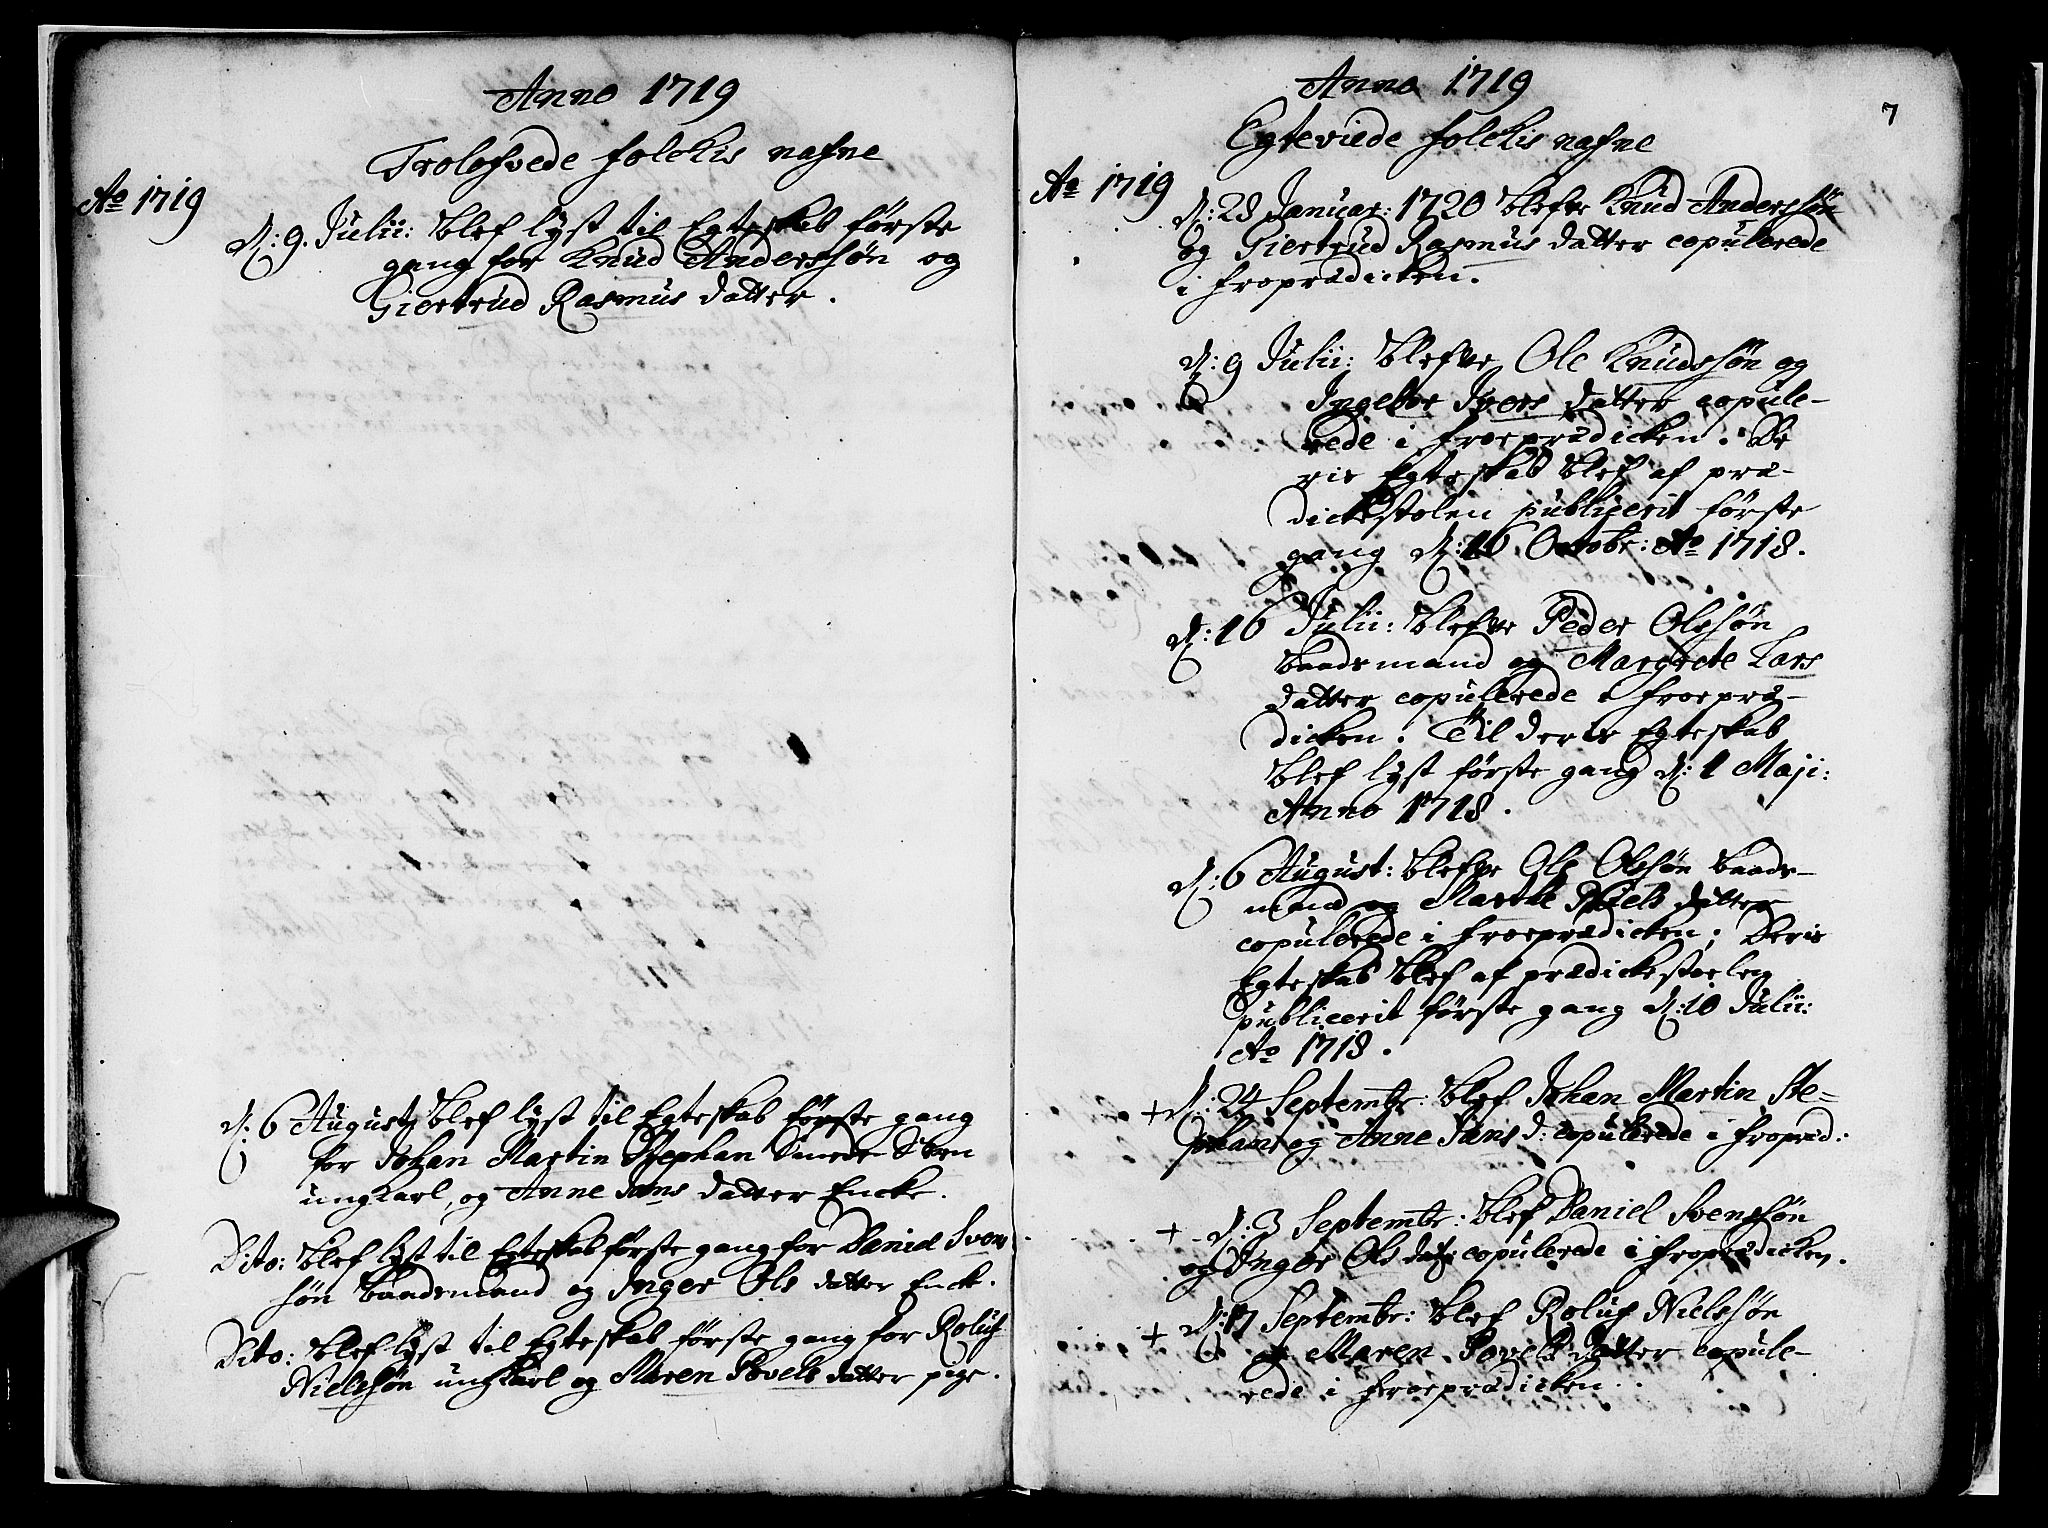 Anno 1719
Trolofvede folckis nafne
Ao 1719
d: 9. Julii: blef lyst til Egteskab første
gang for Knud Anderssøn og
Giertrud Rasmus datter.
d. 6 August blef lyst til Egteskab første gang
for Johan Martin Stephan Smede Sven
ungkarl, og Anne Jans datter Encke.
Dito: blef lyst til Egteskab første gang for Daniel Sven
søn baadsmand og Inger Ols datter Encke.
Dito: blef lyst til Egteskab første gang for Roluf
Nielssøn ungkarl og Maren Povels datter pige.
Anno 1719
7
Egteviede folckis nafne
Ao 1719
d: 28 Januar: 1720 blefve Knud Anderssøn
og Giertrud Rasmus datter copulerede
i froprædicken.
d: 9 Julii: blefve Ole Knudssøn og
Ingebor Ivers datter copule-
rede i froeprædicken. De
ris Egteskab blef af præ-
dickestolen publicerit første
gang d: 16. Octobr: Ao 1718.
d: 16 Julii: blefve Peder Olssøn
baadsmand og Margrete Lars
datter copulerede i froepræ-
dicken. Til deris Egteskab
blef lyst første gang d: 1 Maji:
Anno 1718.
d: 6 August: blefve Ole Olssøn baads-
mand og Marthe Niels datter
copulerede i froeprædicken; Deris
Egteskab blef af prædickestoelen
publicerit første gang d: 10 Julii:
Ao 1718.
+ d: 24 Septembr: blef Johan Martin Ste=
phan og Anne Jans d: copulerede i fropræd:
+ d: 3 Septembr: blef Daniel Svenssøn
og Inger Ols datr copulerede i froprædicken.
+ d: 17 Septembr: blef Roluf Nielssøn
og Maren Povels datter copule-
rede i froeprædicken.